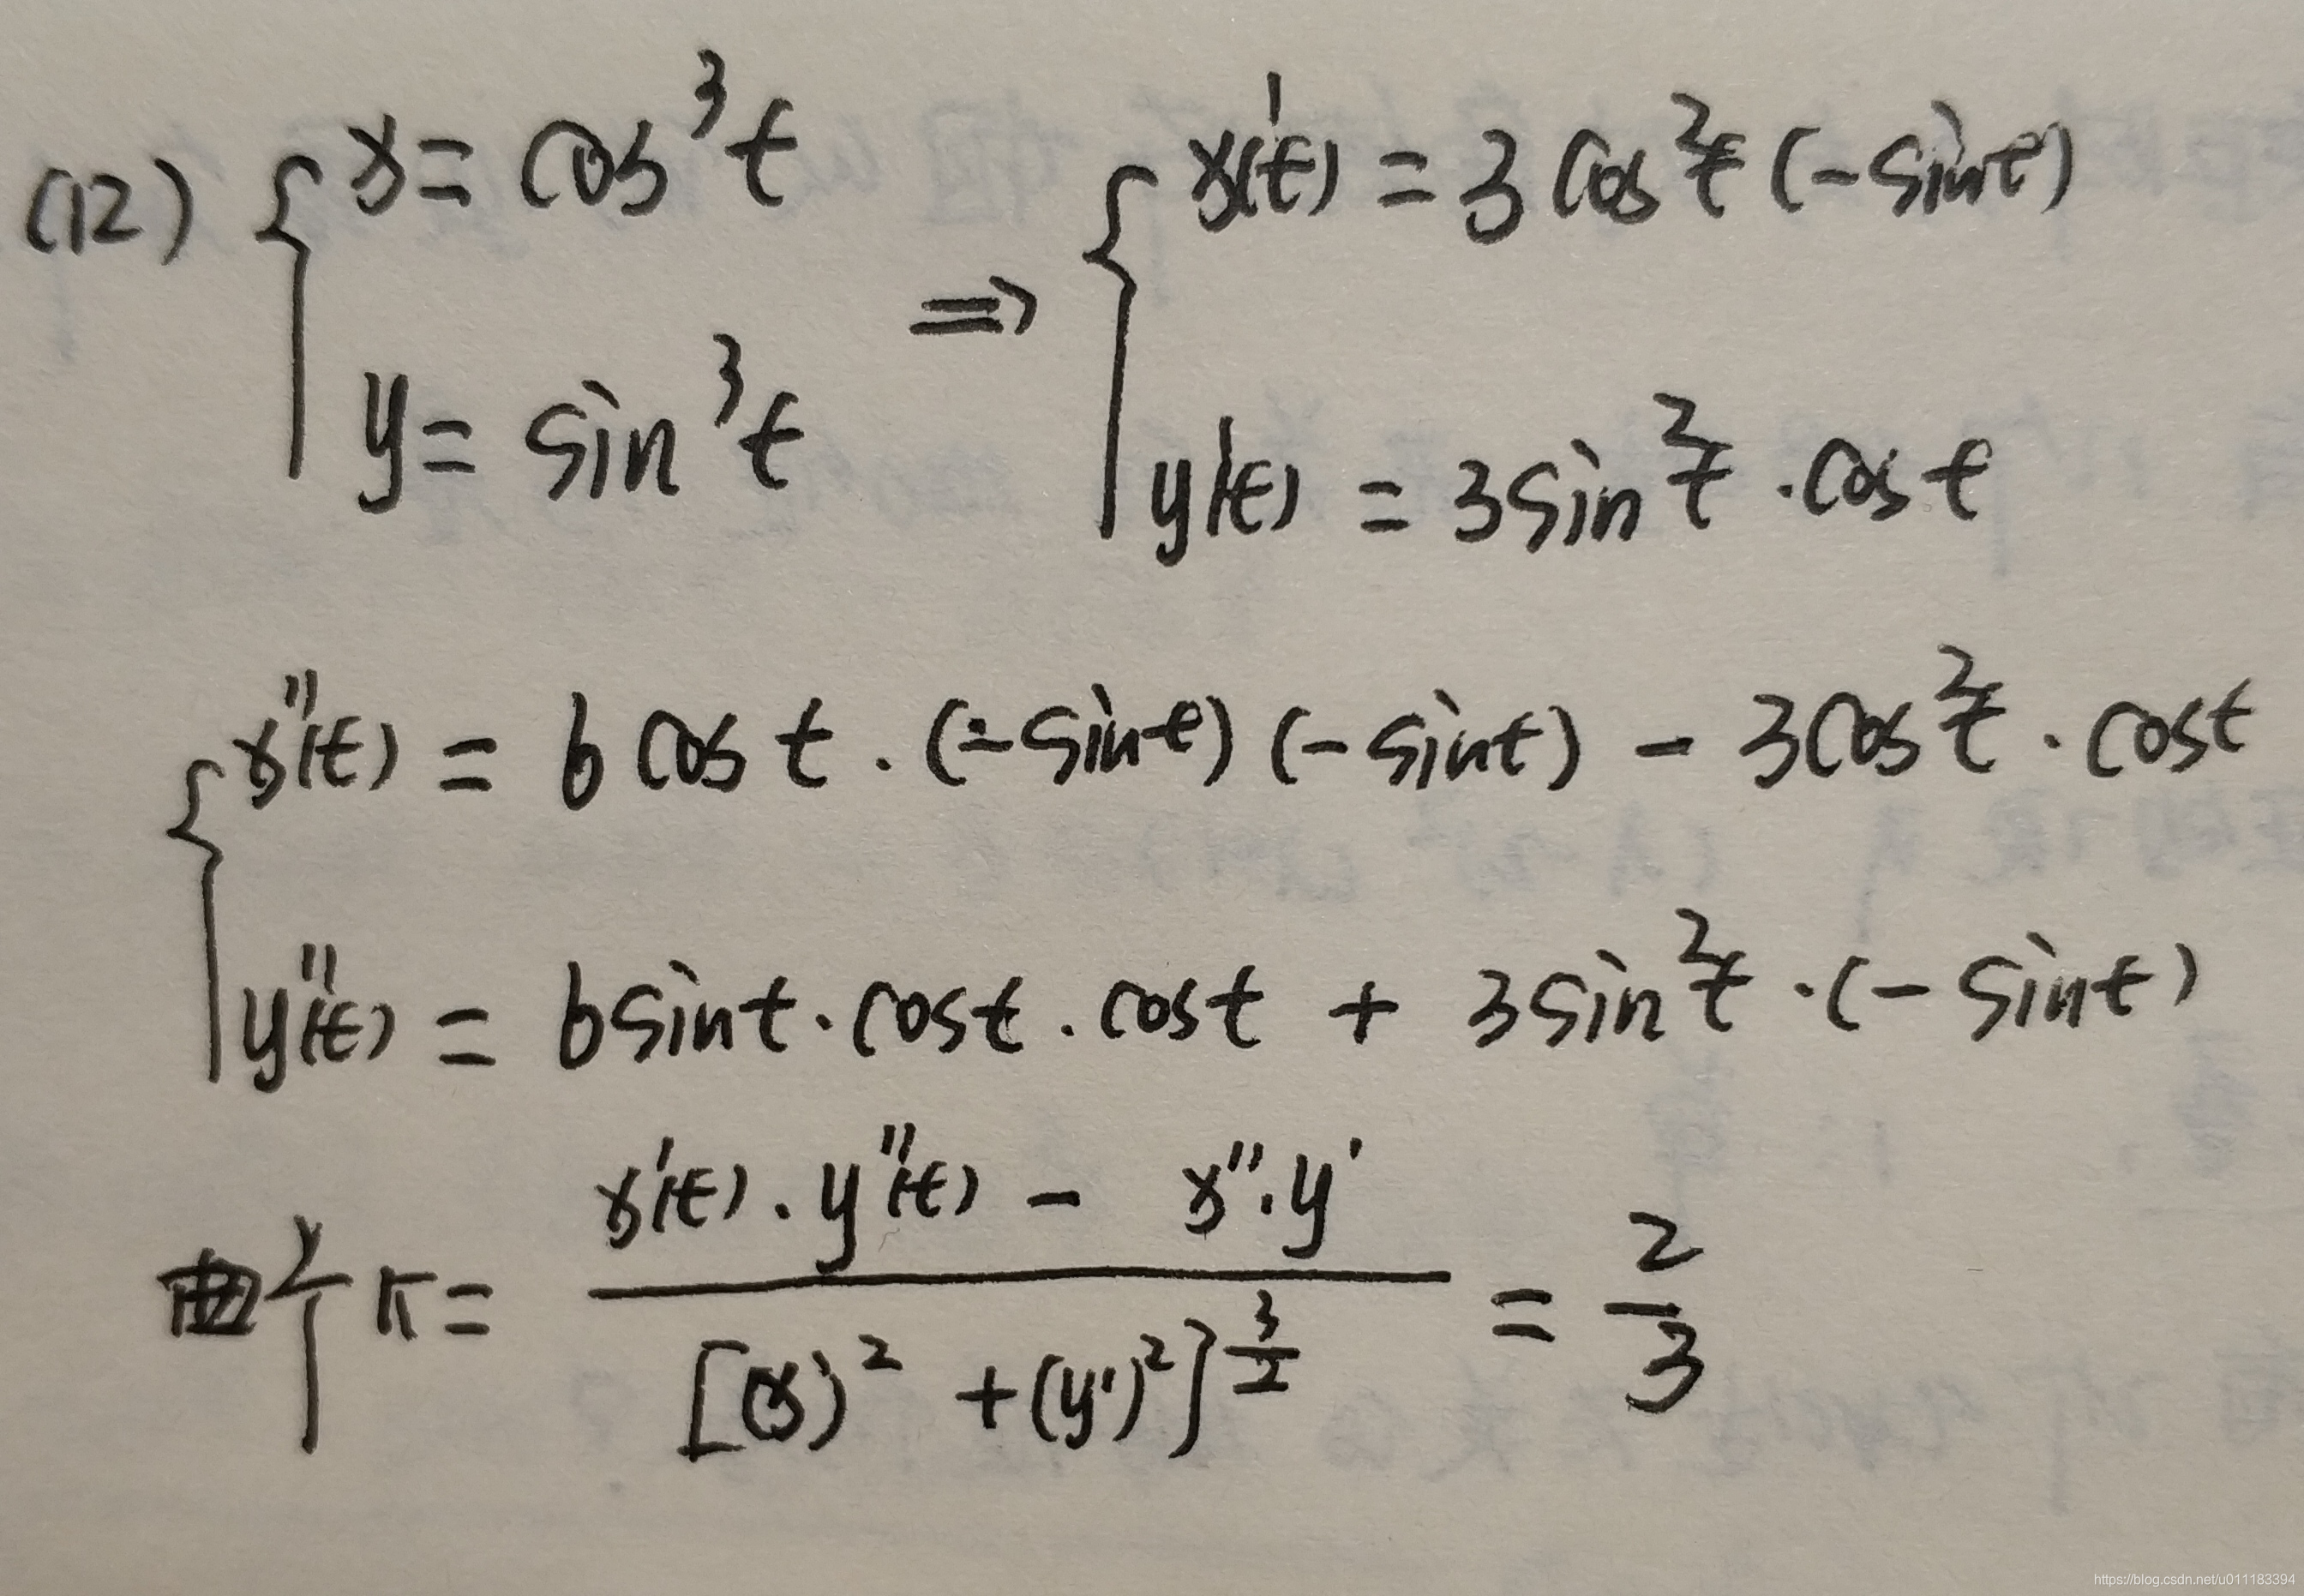 (12) { x = cos³t ⇒ { x'(t) = 3cos²t (-sint)
y = sin³t y'(t) = 3sin²t · cost
{ x''(t) = 6 cos t · (-sint) (-sint) - 3cos²t · cost
y''(t) = 6sint · cost · cost + 3sin²t · (-sint)
曲率 K = x'(t) · y''(t) - x'' · y' / [(x')² + (y')²]^(3/2) = 2/3
https://blog.csdn.net/u011183394